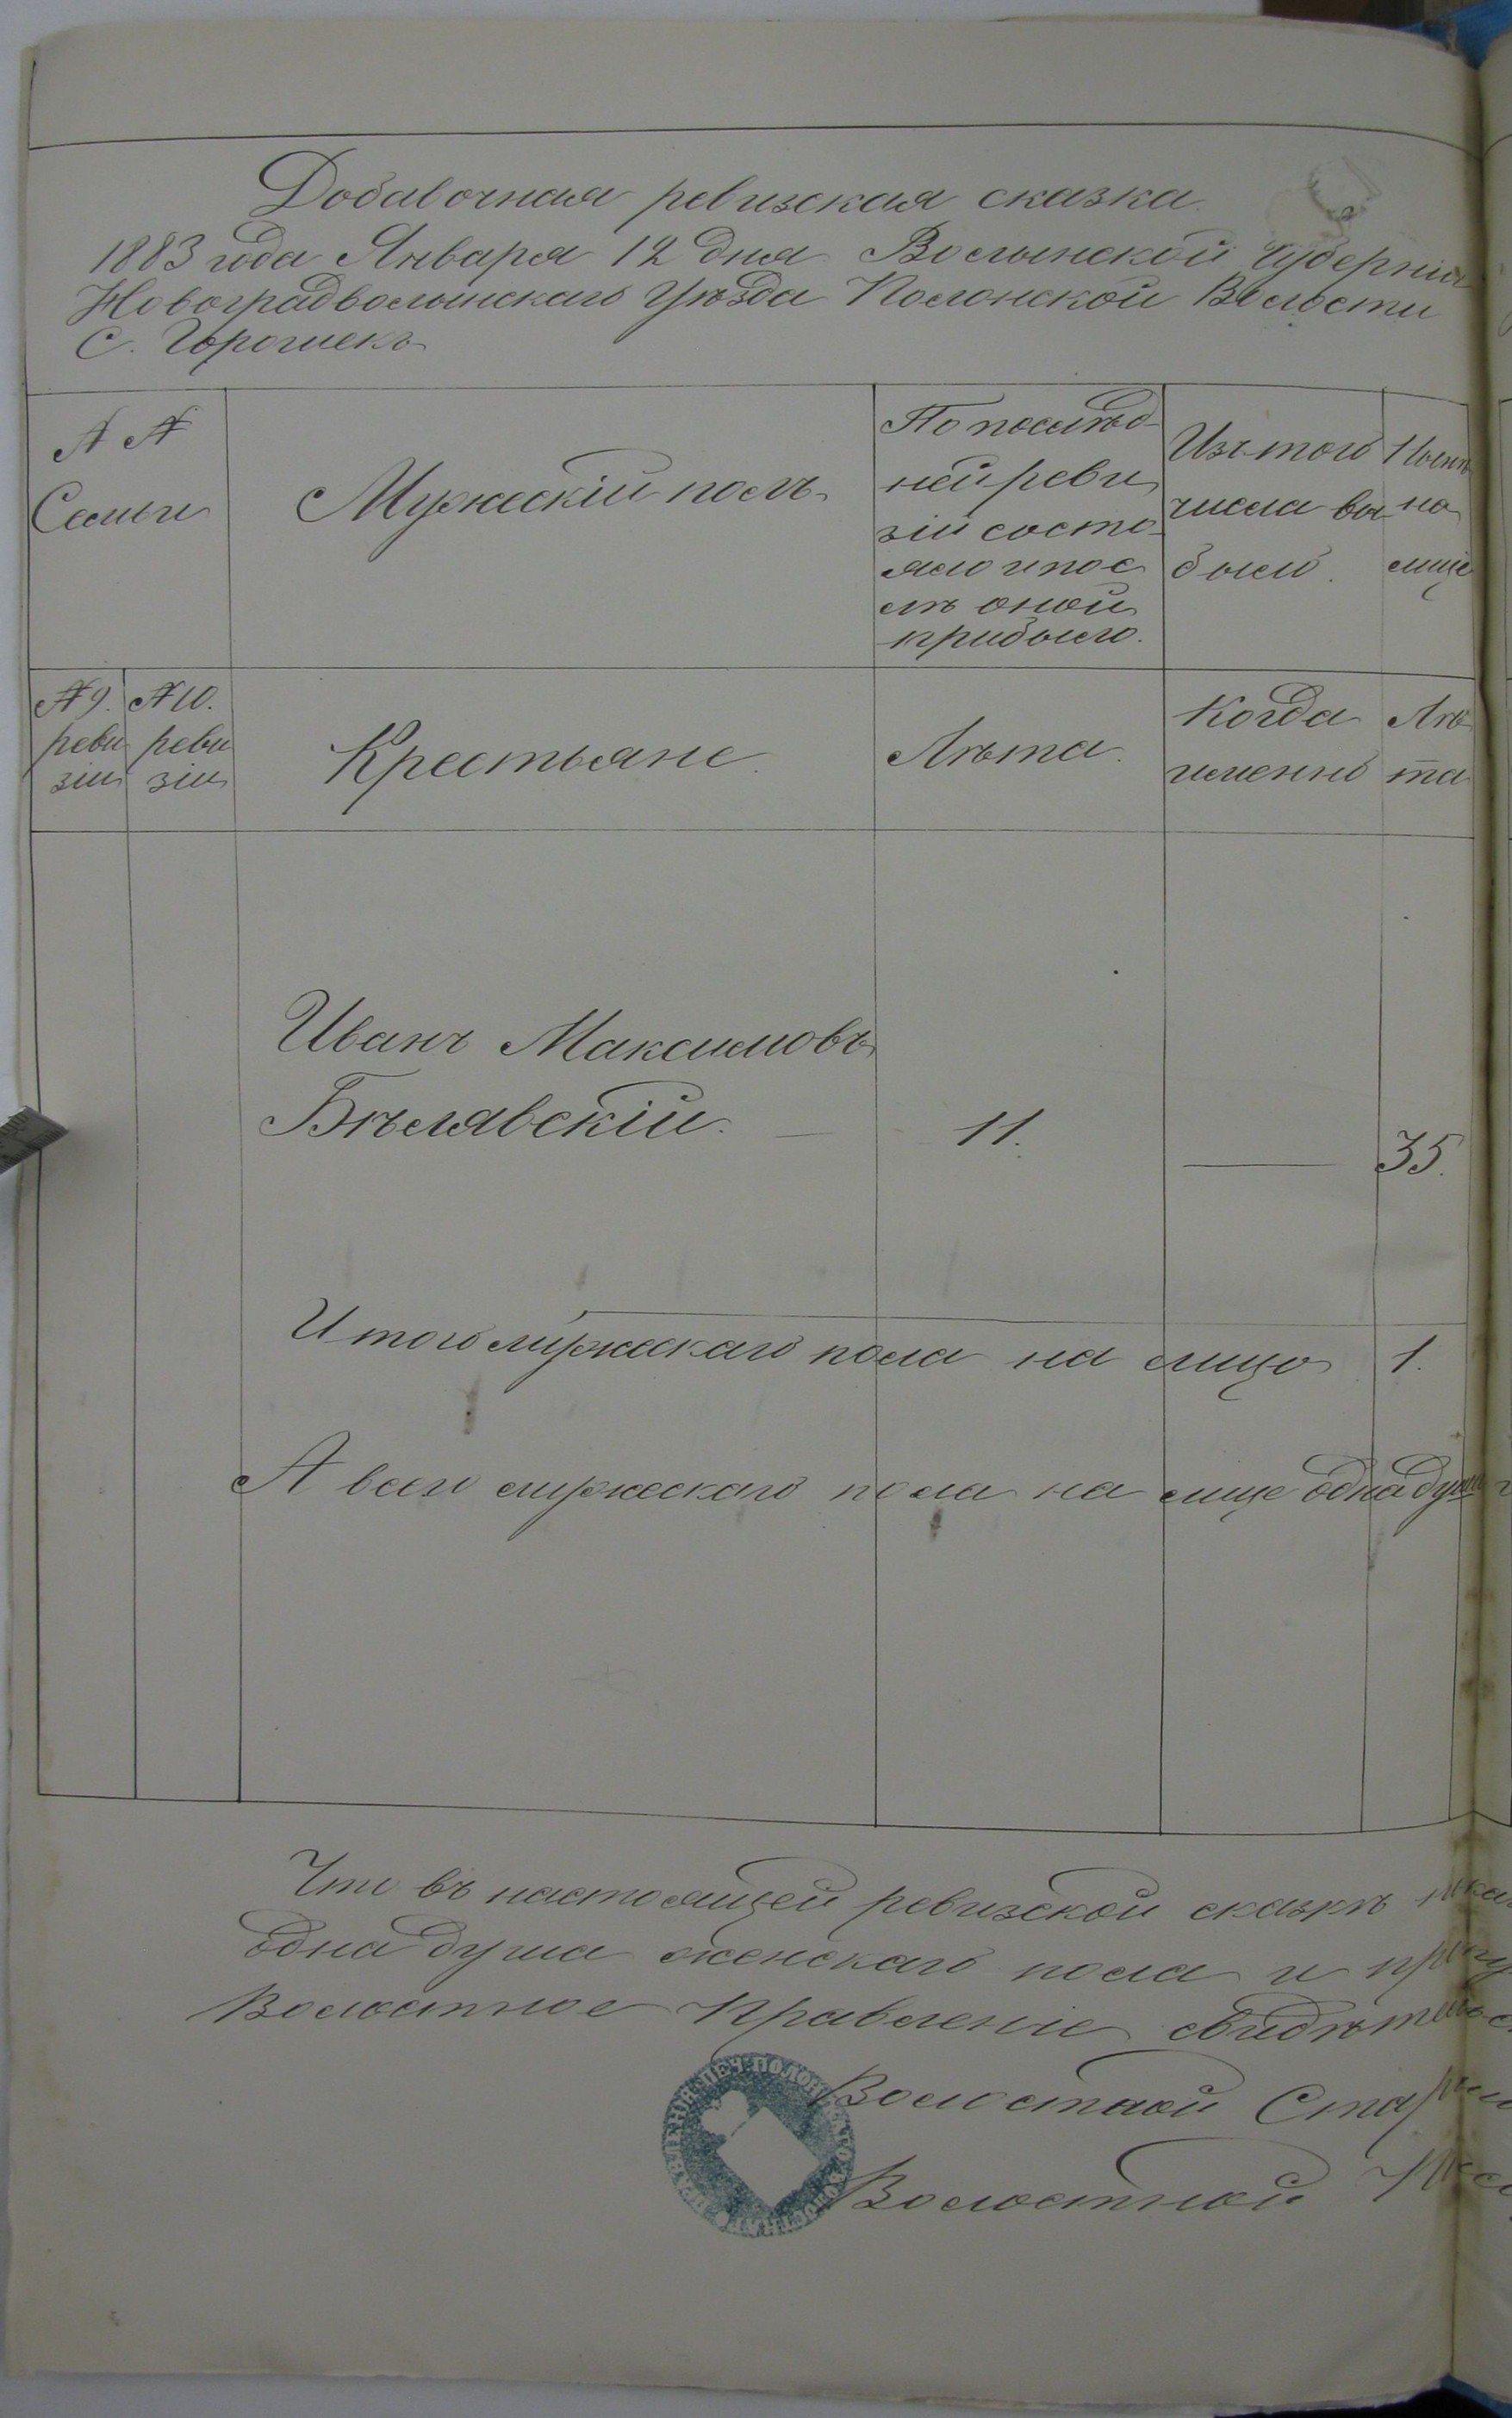 Добавочная ревизская сказка.
1883 года Января 12 дня Волынской губерніи
Новоградволынскаго Уѣзда Полонской Волости
С. Горошекъ
№ №
Семьи
Мужескій полъ
По послѣд-
ней реви
зіи состо-
яло и пос
лѣ оной
прибыло.
Изъ того
числа вы-
было.
Нынѣ
на
лице
№ 9.
реви
зіи
№ 10.
реви
зіи
Крестьяне.
Лѣта.
Когда
именно
Лѣ
та
Иванъ Максимовъ
Бѣлявскій. — 11. — 35.
Итого мужескаго пола на лицо 1.
А всего мужескаго пола на лице одна душа
Что въ настоящей ревизской сказкѣ
одна душа женскаго пола и
Волостное Правленіе
Волостной
Волостной
ПЕЧ. ПОЛОНСКАГО ВОЛОСТНАГО ПРАВЛЕНІЯ